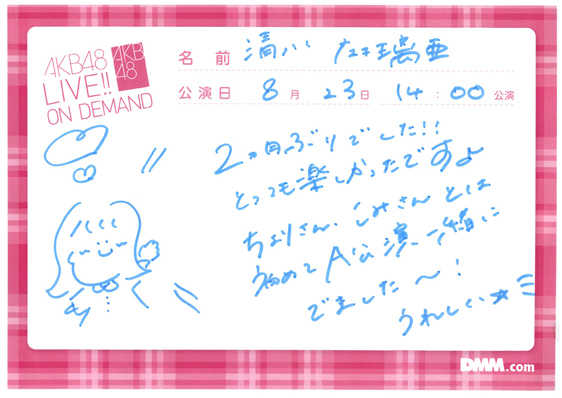 AKB48
LIVE!!
ON DEMAND
AKB
48
名前 清水 麻璃亜
公演日 8月23日 14:00公演
2ヵ月ぶりでした!!
とっても楽しかったですよ
ちよりさん、じみさんとは
初めてA公演一緒に
でました〜!
うれしい☆ミ
DMM.com